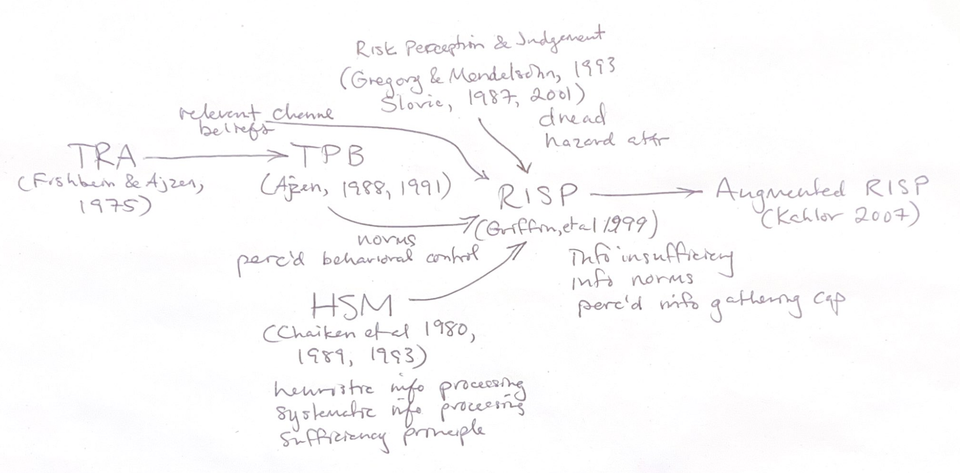 Risk Perception & Judgement
(Gregory & Mendelsohn, 1993
Slovic, 1987, 2001)
dread
hazard attr
relevent channe
beliefs
TRA
(Fishbein & Ajzen,
1975)
TPB
(Ajzen, 1988, 1991)
norms
perc'd behavioral control
RISP
(Griffin, et al 1999)
Info insufficiency
info norms
perc'd info gathering cap
Augmented RISP
(Kahlor 2007)
HSM
(Chaiken et al 1980,
1989, 1993)
heuristic info processing
systematic info processing
sufficiency principle